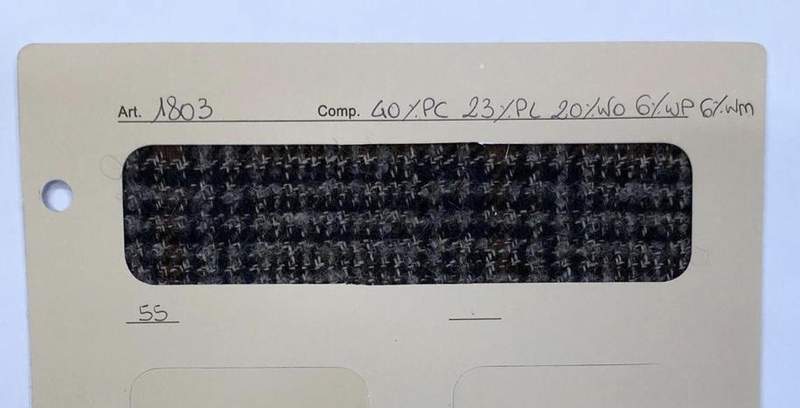 Art. 1803 Comp. 40%PC 23%PL 20%WO 6%WP 6%WM
55